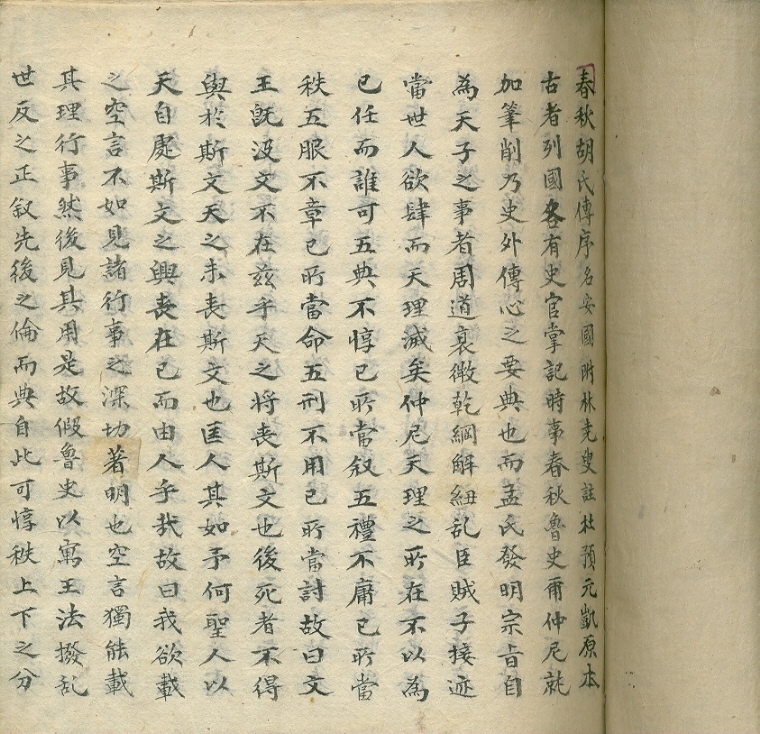 春秋胡氏傳序名安國附林尭叟註杜預元凱原本
古者列國各有史官掌記時事春秋魯史爾仲尼就
加筆削乃史外傳心之要典也而孟氏發明宗旨自
為天子之事者周道衰微乾綱解紐乱臣賊子接迹
當世人欲肆而天理滅矣仲尼天理之所在不以為
已任而誰可五典不惇已所當叙五禮不庸已所當
秩五服不章已所當命五刑不用已所當討故曰文
王既没文不在兹乎天之将丧斯文也後死者不得
與於斯文天之未丧斯文也匡人其如予何聖人以
天自處斯文之興丧在已而由人乎哉故曰我欲載
之空言不如見諸行事之深切著明也空言獨能載
其理行事然後見其用是故假魯史以寓王法撥乱
世反之正叙先後之倫而典自此可惇秩上下之分